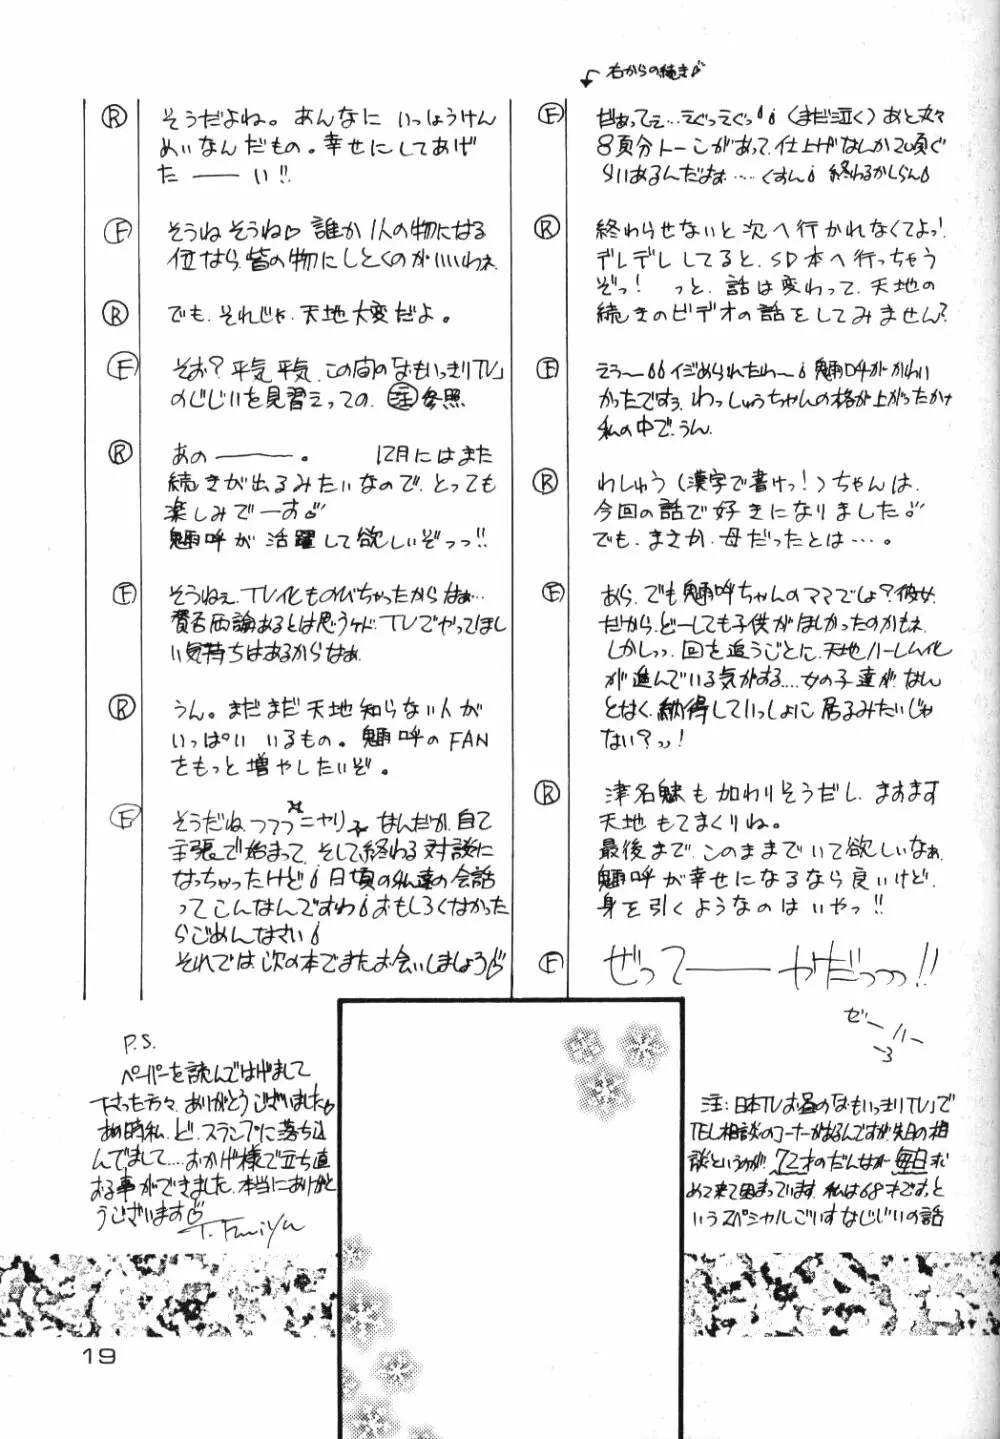 右からの続き
F
だぁってぇ…えぐっえぐっ(まだ泣く)あと丸々
8頁分トーンがあって、仕上げなしか20頁ぐ
らいあるんだよぉ…‥くすん 終わるかしらん
R
終わらせないと次へ行かれなくてよっ!
デレデレしてると、SD本へ行っちゃう
ぞっ! っと、話は変わって、天地の
続きのビデオの話をしてみません?
F
えぅ〜イジめられたわ〜 魎呼がかわい
かったですぅ、わっしゅうちゃんの格が上がったかな
私の中で、うん。
R
わしゅう(漢字で書けっ!)ちゃんは、
今回の話で好きになりました
でも、まさか、母だったとは…。
F
あら、でも魎呼ちゃんのママでしょ?彼女。
だから、どーしても子供がほしかったのかもネ。
しかしっっ、回を追うごとに、天地ハーレム化
が進んでいる気がする‥‥女の子達が、なん
となく、納得していっしょに居るみたいじゃ
ない?っっ!
R
津名魅も加わりそうだし、ますます
天地もてまくりね。
最後まで、このままでいて欲しいなぁ。
魎呼が幸せになるなら良いけど、
身を引くようなのはいやっ!!
F
ぜってーーーやだっっっ!!
ゼーハー
注:日本TVお昼の「なもいっきりTV」で
TEL相談のコーナーがあるんですが、先日の相
談というのが、72才のだんなが毎日求
めて来て困まっています。私は68才です。っと
いうスペシャルごいすなじじいの話
R
そうだよね。あんなに いっしょうけん
めいなんだもの。幸せにしてあげ
たーーい!!
F
そうねそうね♡ 誰か1人の物になる
位なら、皆の物にしとくのがいいわネ。
R
でも、それじゃ、天地大変だよ。
F
そお?平気、平気、この間の「なもいっきりTV」
のじじいを見習えっての、注参照
R
あのーーー。 12月にはまた
続きが出るみたいなので、とっても
楽しみでーす
魎呼が活躍して欲しいぞっっ!!
F
そうねぇ、TV化ものびちゃったからなぁ…
賛否両論あるとは思うケド、TVでやってほし
い気持ちはあるからなぁ。
R
うん。まだまだ天地知らない人が
いっぱい いるもの。魎呼のFAN
をもっと増やしたいぞ。
F
そうだね、フフフニヤリ なんだか、自己
主張で始まって、そして、終わる対談に
なっちゃったけど 日頃の私達の会話
ってこんなんですわ おもしろくなかった
らごめんなさい
それでは次の本でまたお会いしましょう♡
P.S.
ペーパーを読んではげまして
下さった方々、ありがとうございました
あの時私、ど、スランプに落ち込
んでまして…おかげ様で立ち直
おる事ができました。本当にありがと
うございます♡
19